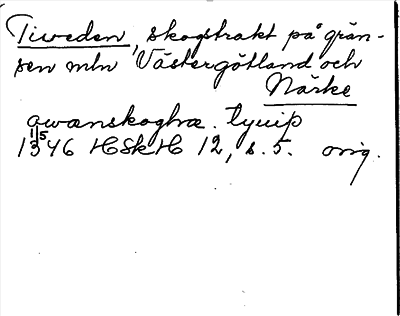 Tiweden, skogstrakt på grän-
sen mln Västergötland och
Närke
awanskoghræ. tyuiþ
1/5
1346 HSkH 12, s. 5. orig.